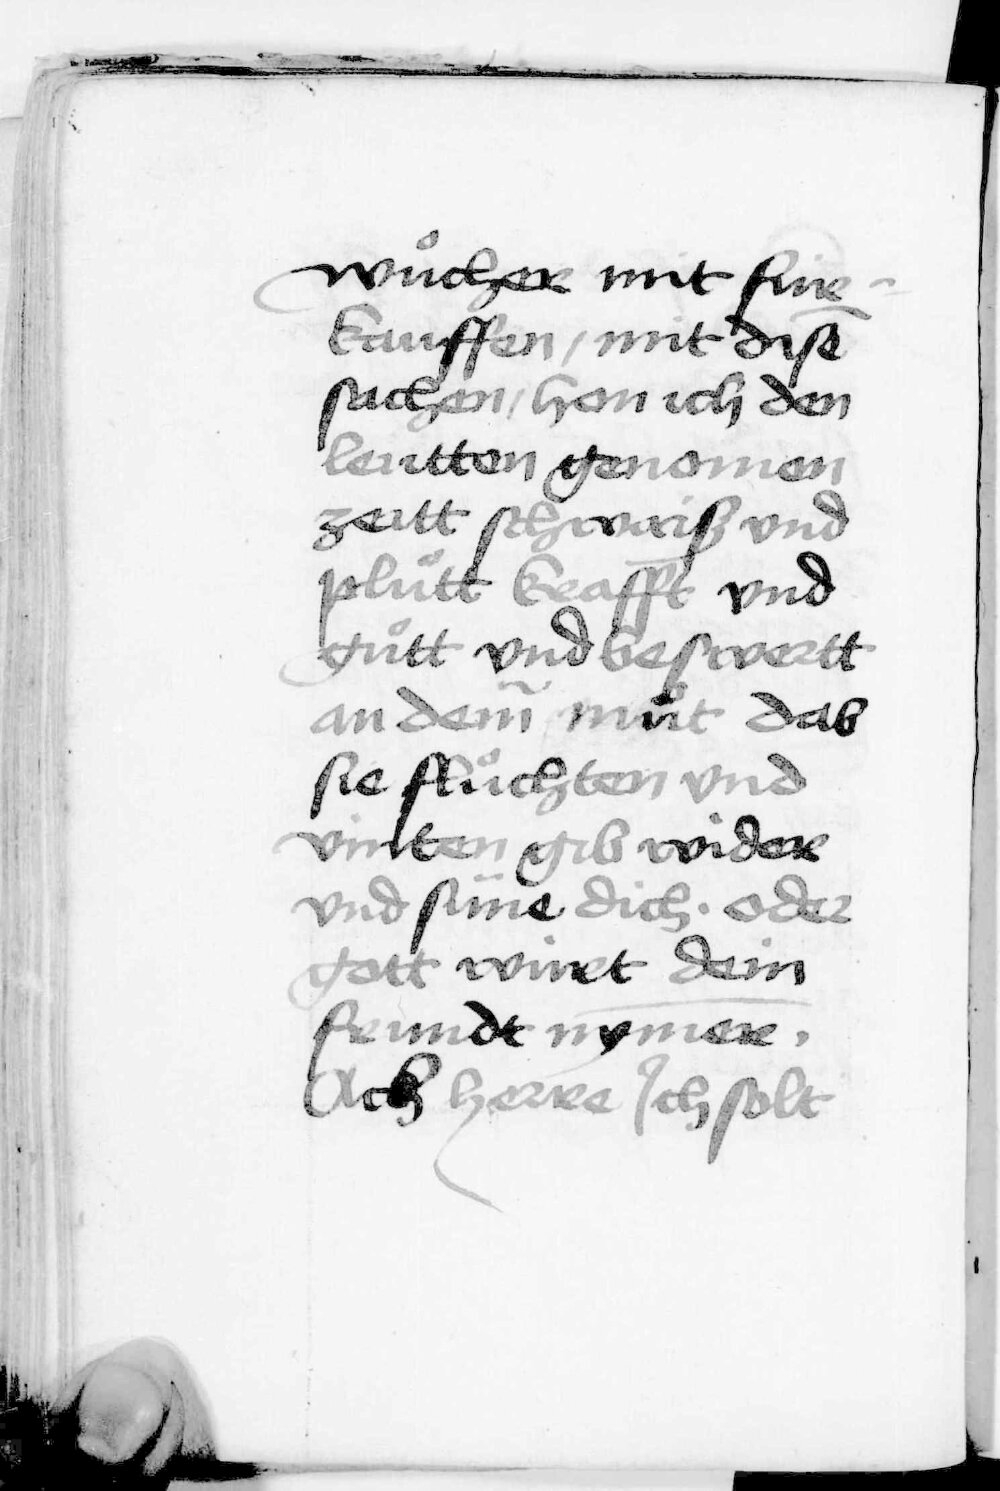 wůcher mit fur¬
kauffen / mit disē
sachen / hon ich den
leutten genomen
zeitt schwaiß vnd
plůtt krafft vnd
gůtt vnd beswertt
an dem̃ můt das
sie flůchten vnd
vinten gib wider
vnd süne dich . oder
gott wirt dein
freundt nymer .
Ach herre Ich solt